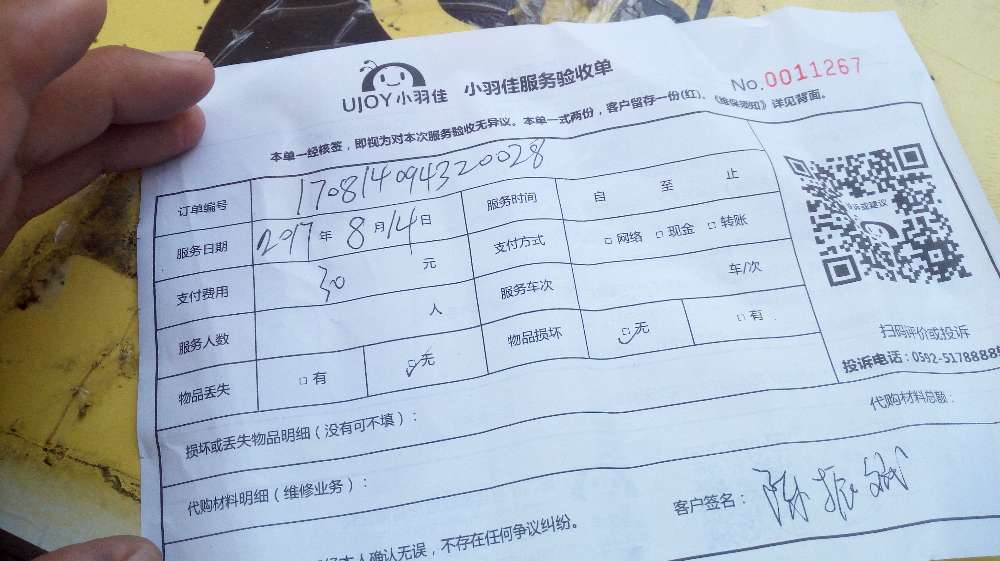 UJOY小羽佳 小羽佳服务验收单 No.0011267
本单一经核签，即视为对本次服务验收无异议。本单一式两份，客户留存一份(红)。《维保须知》详见背面。
订单编号 170814094320028
服务日期 2017年8月14日 服务时间 自 至 止
支付费用 30 元 支付方式 □网络 □现金 □转账
服务人数 人 服务车次 车/次
物品丢失 □有 ☑无 物品损坏 ☑无 □有
扫码评价或投诉
投诉电话：0592-5178888
损坏或丢失物品明细（没有可不填）：
代购材料明细（维修业务）： 代购材料总额：
本人确认无误，不存在任何争议纠纷。 客户签名：陈振斌